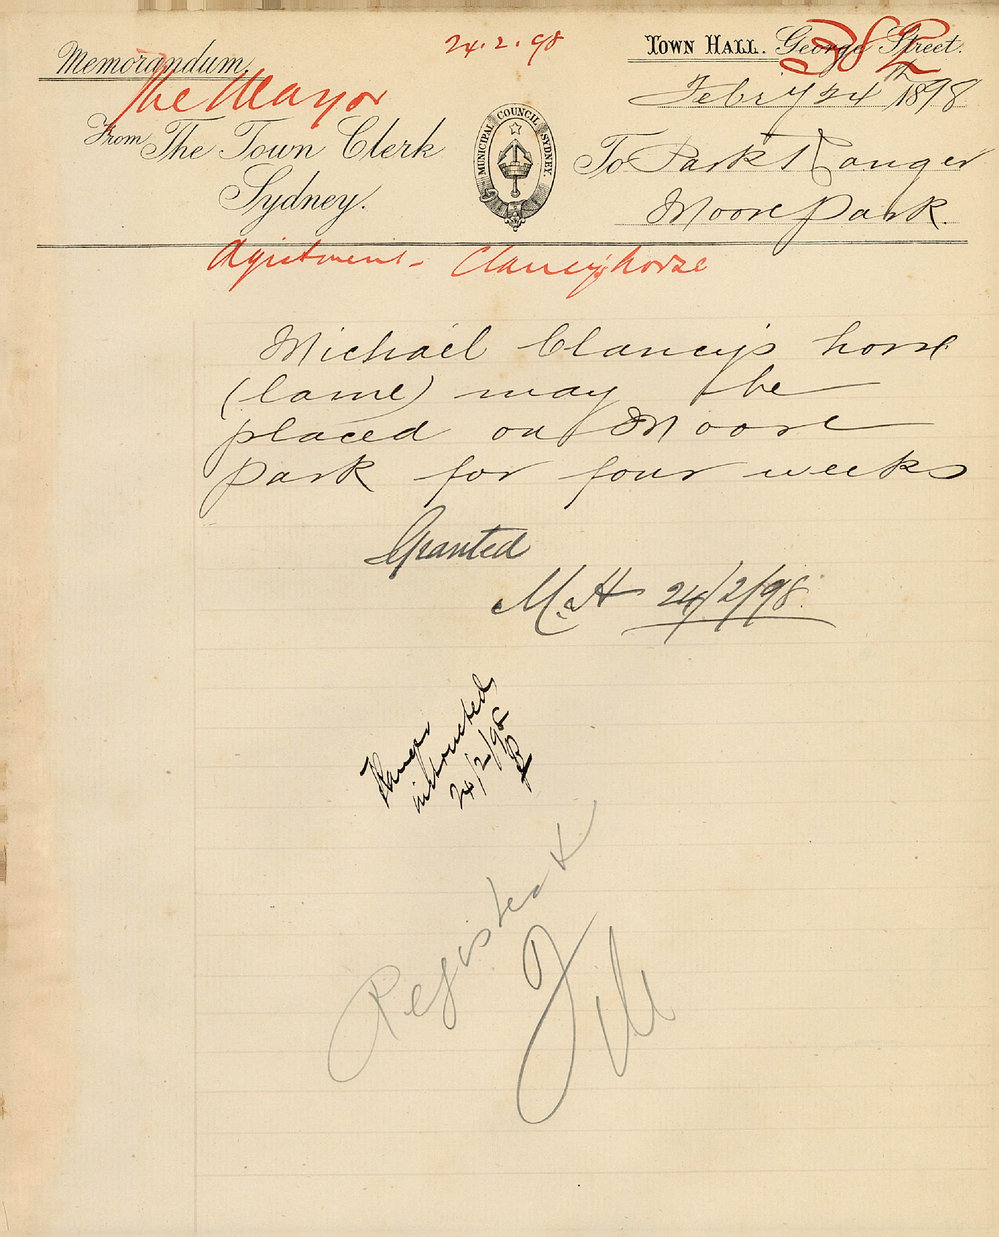 24.2.98
Memorandum
Town Hall. George Street.
The Mayor
Feby 24th 1898
From The Town Clerk
Sydney.
MUNICIPAL COUNCIL SYDNEY
To Park Ranger
Moore Park.
Agistment - Clancy's horse
Michael Clancy's horse
(lame) may be
placed on Moore
Park for four weeks
Granted
24/2/98
Ranger
instructed
24/2/98
Register &
File